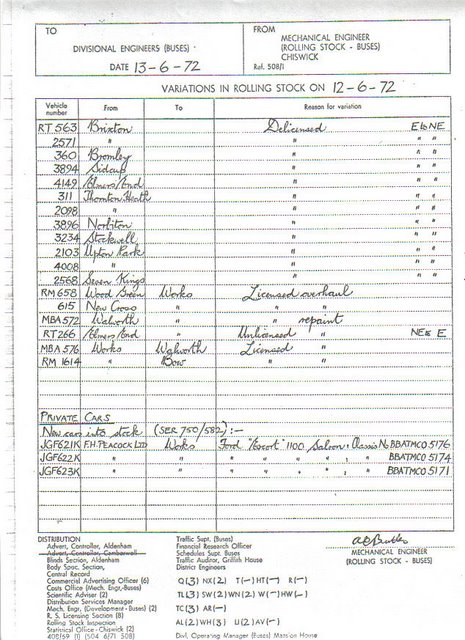 TO
DIVISIONAL ENGINEERS (BUSES)
DATE 13-6-72
FROM
MECHANICAL ENGINEER
(ROLLING STOCK - BUSES)
CHISWICK
Ref. 508/1
VARIATIONS IN ROLLING STOCK ON 12-6-72
Vehicle number From To Reason for variation
RT 563 Brixton Delicensed E to NE
2571 " " " "
360 Bromley " " "
3894 Sidcup " " "
4149 Elmers End " " "
311 Thornton Heath " " "
2098 " " " "
3896 Norbiton " " "
3234 Stockwell " " "
2103 Upton Park " " "
4008 " " " "
2568 Seven Kings " " "
RM 658 Wood Green Works Licensed overhaul
615 New Cross " " "
MBA 572 Walworth " " repaint
RT 266 Elmers End " Unlicensed " NE to E
MBA 576 Works Walworth Licensed "
RM 1614 " Bow " "
PRIVATE CARS
New cars into stock (SER 750/582) :-
JGF621K F.H. PEACOCK LTD Works Ford "Escort" 1100 Saloon : Chassis No BBATMC05176
JGF622K " " " " " " : " BBATMC05174
JGF623K " " " " " " : " BBATMC05171
DISTRIBUTION
Advert. Controller, Aldenham
Advert. Controller, Camberwell
Blinds Section, Aldenham
Body Spec. Section,
Central Record
Commercial Advertising Officer (6)
Costs Office (Mech. Engr.-Buses)
Scientific Adviser (2)
Distribution Services Manager
Mech. Engr. (Development - Buses) (2)
R. S. Licensing Section (8)
Rolling Stock Inspection
Statistical Office - Chiswick (2)
Traffic Supt. (Buses)
Financial Research Officer
Schedules Supt. Buses
Traffic Auditor, Griffith House
District Engineers
Q (3) NX (2) T (-) HT (-) R (-)
TL (3) SW (2) WN (2) W (-) HW (-)
TC (3) AR (-)
AL (2) WH (3) U (2) AV (-)
Divl. Operating Manager (Buses) Mansion House
MECHANICAL ENGINEER
(ROLLING STOCK - BUSES)